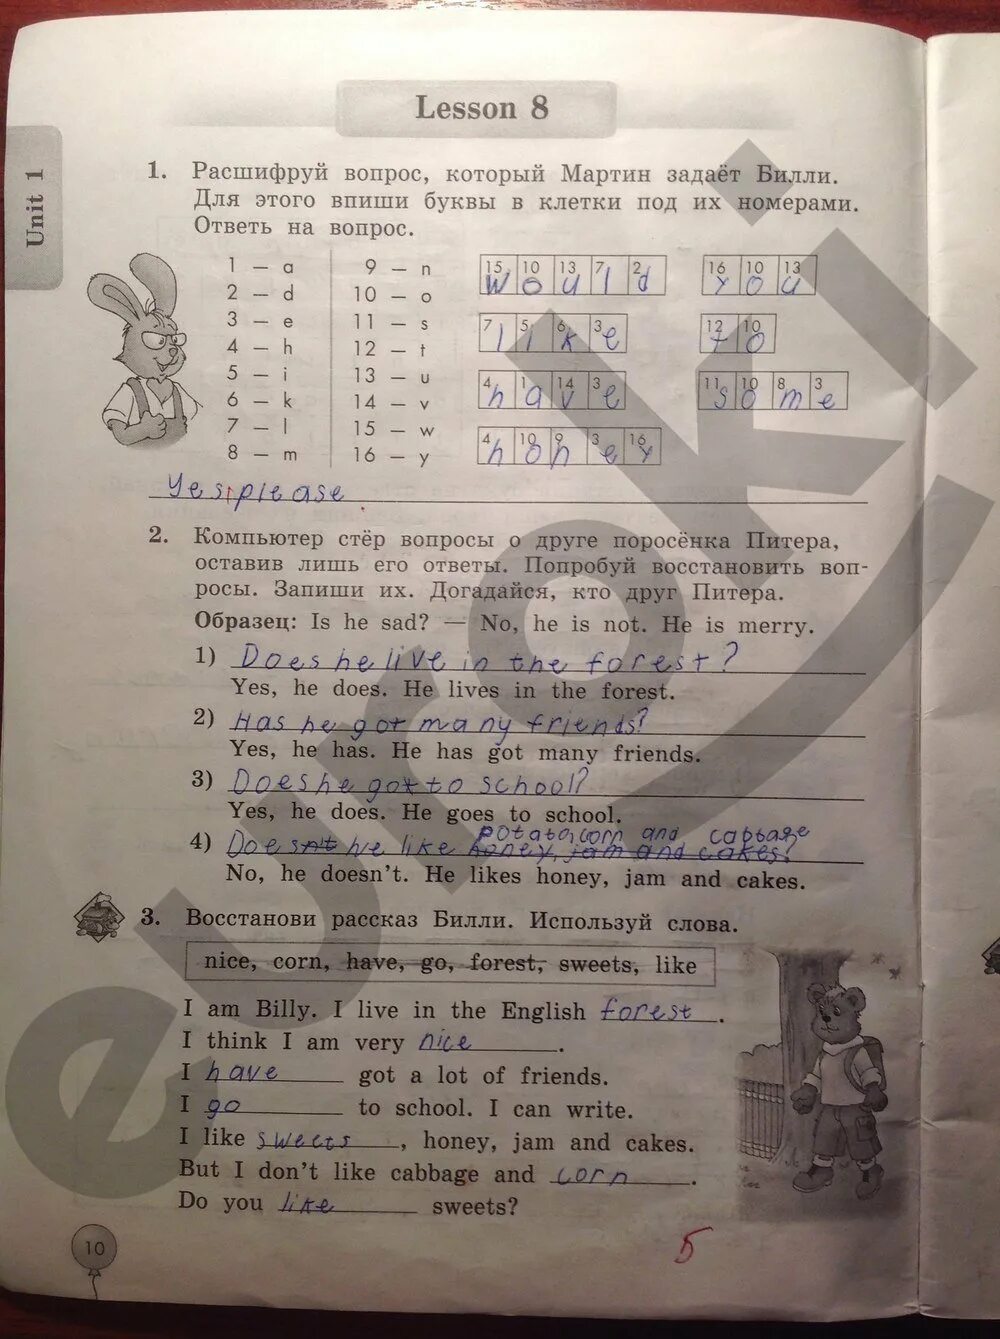 Unit 1
Lesson 8
1. Расшифруй вопрос, который Мартин задаёт Билли.
Для этого впиши буквы в клетки под их номерами.
Ответь на вопрос.
1 — a 9 — n 15 10 13 7 2 16 10 13
2 — d 10 — o would you
3 — e 11 — s 7 5 6 3 12 10
4 — h 12 — t like to
5 — i 13 — u 4 1 14 3 11 10 8 3
6 — k 14 — v have some
7 — l 15 — w 4 10 9 3 16
8 — m 16 — y honey
Yes, please
2. Компьютер стёр вопросы о друге поросёнка Питера,
оставив лишь его ответы. Попробуй восстановить воп-
росы. Запиши их. Догадайся, кто друг Питера.
Образец: Is he sad? — No, he is not. He is merry.
1) Does he live in the forest?
Yes, he does. He lives in the forest.
2) Has he got many friends?
Yes, he has. He has got many friends.
3) Does he got to school?
Yes, he does. He goes to school.
potato, corn and cabbage
4) Doesn't he like honey, jam and cakes?
No, he doesn't. He likes honey, jam and cakes.
3. Восстанови рассказ Билли. Используй слова.
nice, corn, have, go, forest, sweets, like
I am Billy. I live in the English forest.
I think I am very nice.
I have got a lot of friends.
I go to school. I can write.
I like sweets, honey, jam and cakes.
But I don't like cabbage and corn.
Do you like sweets?
10
5
euroki